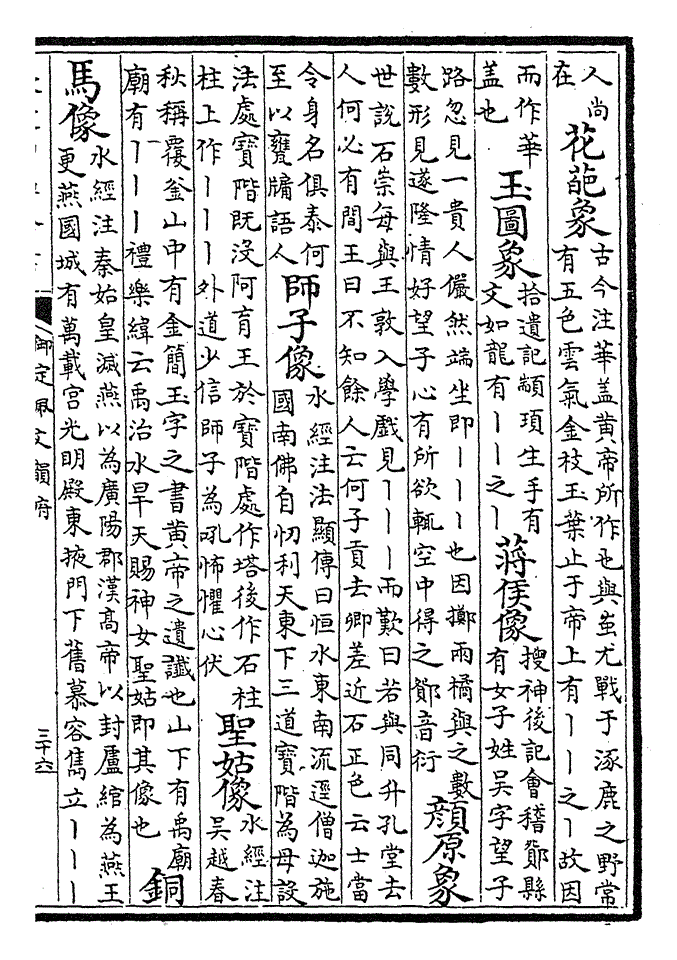 人尚
在
花葩象
古今注華盖黄帝所作也與蚩尤戰于涿鹿之野常
有五色雲氣金枝玉葉止于帝上有丨丨之丨故因
而作華
盖也
玉圖象
拾遺記顓頊生手有
文如龍有丨丨之丨
蔣侯像
搜神後記會稽鄮縣
有女子姓吳字望子
路忽見一貴人儼然端坐即丨丨丨也因擲兩橘與之數
數形見遂隆情好望子心有所欲輒空中得之鄮音衍
顔原象
世說石崇每與王敦入學戲見丨丨丨而歎曰若與同升孔堂去
人何必有間王曰不知餘人云何子貢去卿差近石正色云士當
令身名俱泰何
至以甕牖語人
師子像
水經注法顯傳曰恒水東南流逕僧迦施
國南佛自忉利天東下三道寶階為母説
法處寶階既没阿育王於寶階處作塔後作石柱
柱上作丨丨丨外道少信師子為吼怖懼心伏
聖姑像
水經注
吳越春
秋稱覆釜山中有金簡玉字之書黄帝之遺讖也山下有禹廟
廟有丨丨丨禮樂緯云禹治水旱天賜神女聖姑即其像也
銅
馬像
水經注秦始皇滅燕以為廣陽郡漢高帝以封盧綰為燕王
更燕國城有萬載宫光明殿東掖門下舊慕容雋立丨丨丨
御定佩文韻府
三十六